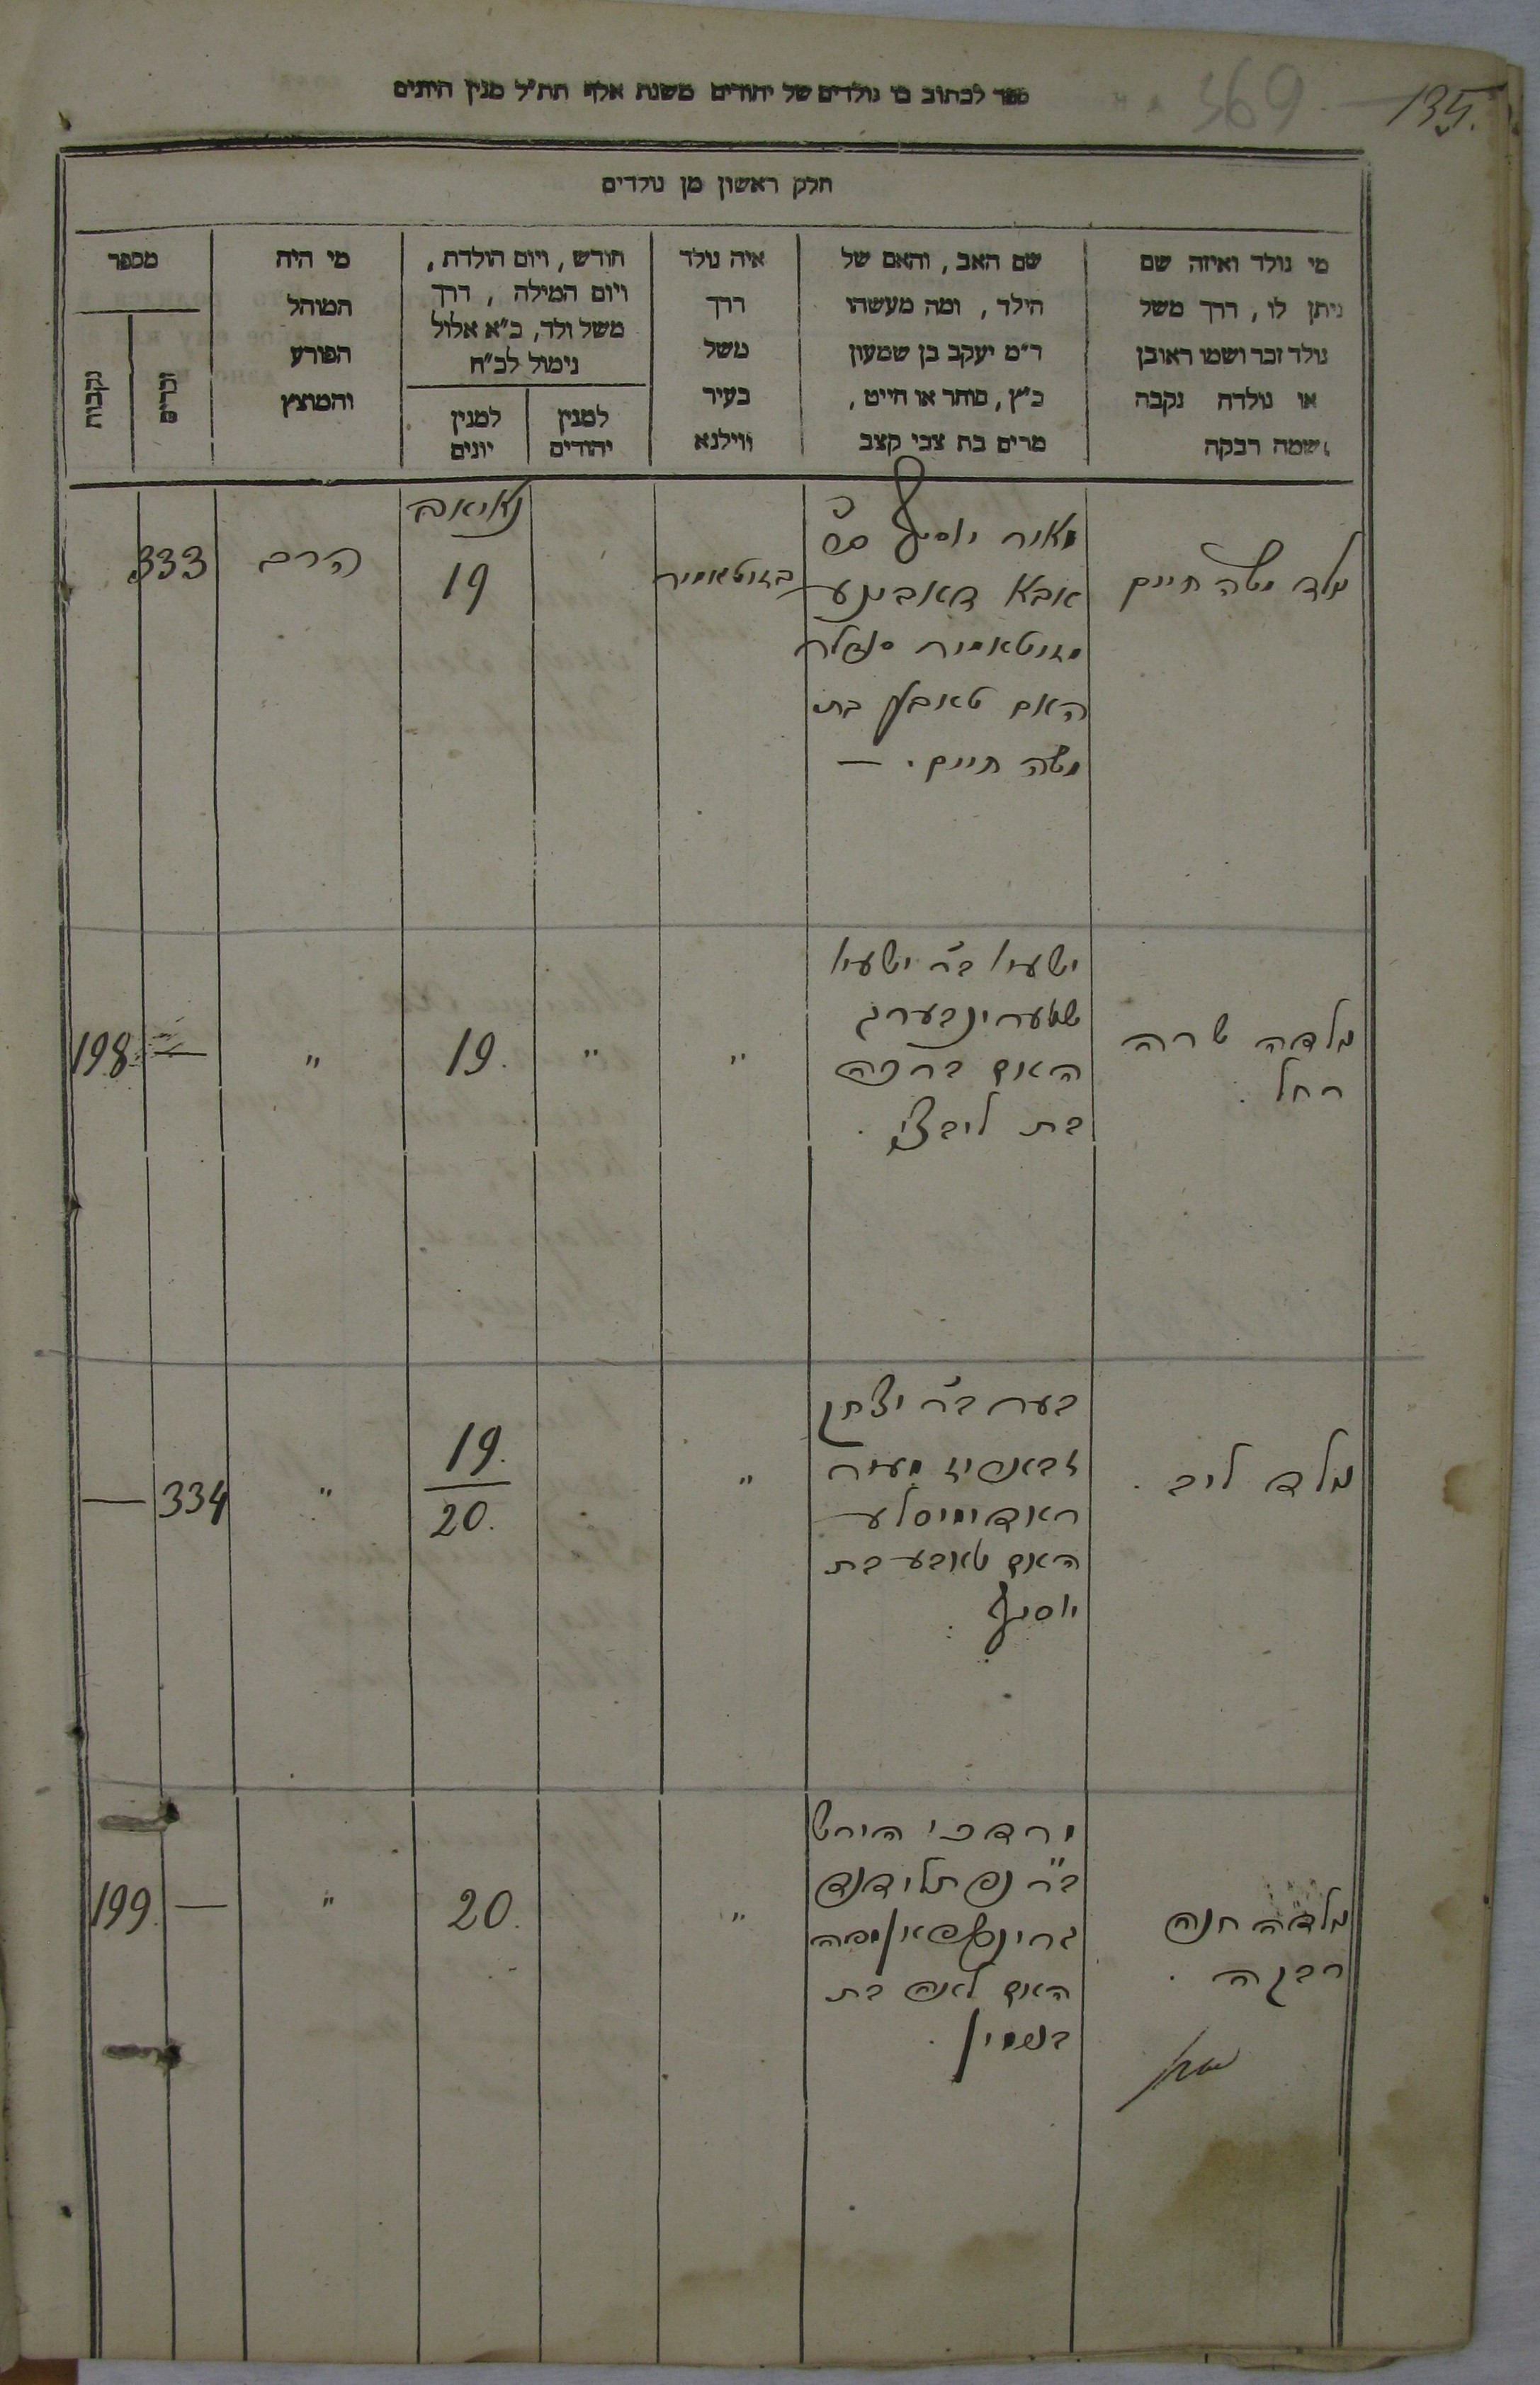 135.
369
ספר לכתוב בו נולדים של יהודים משנת אלף תת״ל מנין היונים
חלק ראשון מן נולדים
מי נולד ואיזה שם
ניתן לו, דרך משל
נולד זכר ושמו ראובן
או נולדה נקבה
ושמה רבקה
שם האב, והאם של
הילד, ומה מעשהו
ר״מ יעקב בן שמעון
כ״ץ, סוחר או חייט,
מרים בת צבי קצב
איה נולד
דרך
משל
בעיר
ווילנא
חודש, ויום הולדת,
ויום המילה, דרך
משל ולד, כ״א אלול
נימול לכ״ח
למנין
יהודים
למנין
יונים
מי היה
המוהל
הפורע
והמוצץ
מספר
זכרים
נקבות
נולד משה חיים
מאיר יוסף
אבא
האם טאבע בת
משה חיים. —
בזיטאמיר
נאיאבר
19
הרב
333
נולדה שרה
רחל.
ישעיו ב״ר ישעיו
שטערינבערג
האם ברכה
בת ליבצי.
"
"
19.
"
—
198
נולד ליב.
בער ב״ר יצחק
מעיר
ראדימיסלע
האם טאבע בת
יוסף.
"
19.
20.
"
334
—
נולדה חנה
רבקה.
מרדכי הירש
ב״ר נפתלי
האם לאה בת
בנימין.
"
20.
"
—
199.